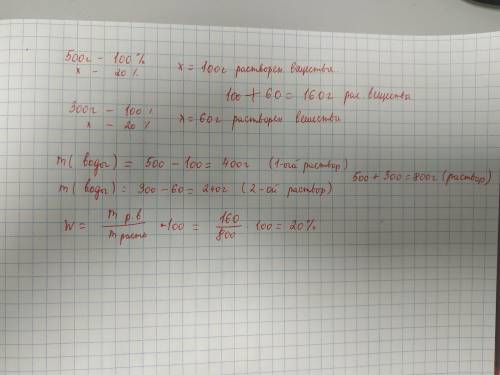 500г – 100%
x – 20%
x = 100г растворен вещества
100 + 60 = 160г рас. вещества
300г – 100%
x – 20%
x = 60г растворен вещества
m( воды ) = 500 – 100 = 400г (1-ый раствор)
500 + 300 = 800г (раствор)
m( воды ) = 300 – 60 = 240г (2-ой раствор)
W = m р.в / m раств · 100 = 160 / 800 100 = 20%